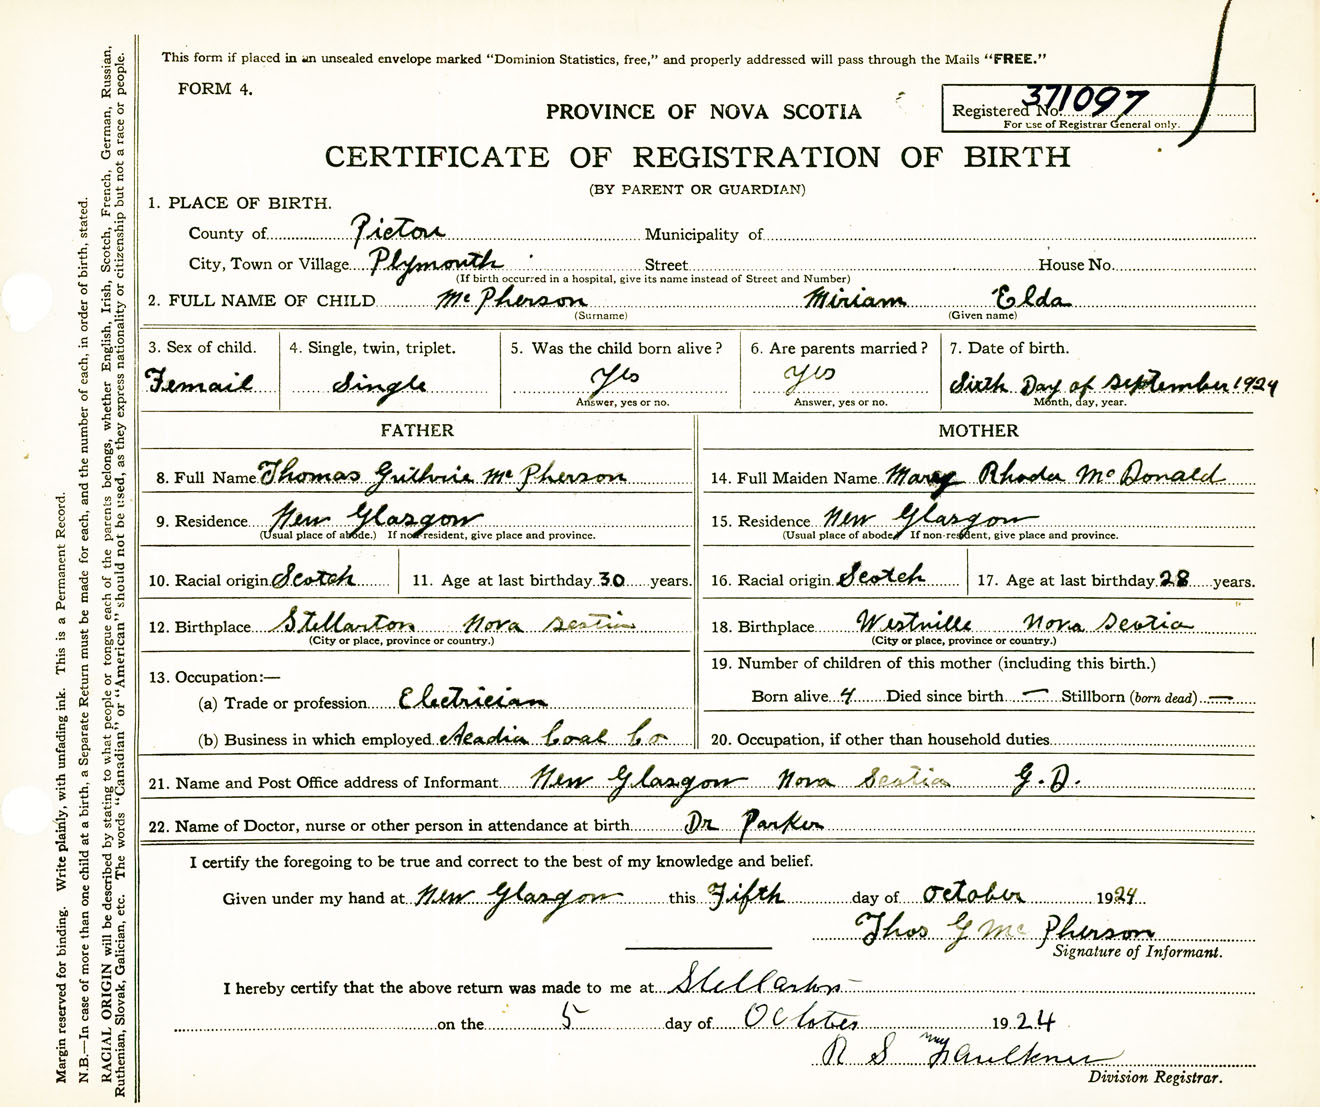 This form if placed in an unsealed envelope marked "Dominion Statistics, free," and properly addressed will pass through the Mails "FREE."
FORM 4.
PROVINCE OF NOVA SCOTIA
Registered No. 371097
For use of Registrar General only.
CERTIFICATE OF REGISTRATION OF BIRTH
(BY PARENT OR GUARDIAN)
1. PLACE OF BIRTH.
County of Pictou Municipality of
City, Town or Village Plymouth Street House No.
(If birth occurred in a hospital, give its name instead of Street and Number)
2. FULL NAME OF CHILD McPherson Miriam Elda
(Surname) (Given name)
3. Sex of child. 4. Single, twin, triplet. 5. Was the child born alive? 6. Are parents married? 7. Date of birth.
Femail Single Yes Yes Sixth Day of September 1924
Answer, yes or no. Answer, yes or no. Month, day, year.
FATHER MOTHER
8. Full Name Thomas Guthrie McPherson 14. Full Maiden Name Mary Rhoda McDonald
9. Residence New Glasgow 15. Residence New Glasgow
(Usual place of abode.) If not resident, give place and province. (Usual place of abode.) If non-resident, give place and province.
10. Racial origin Scotch 11. Age at last birthday 30 years. 16. Racial origin Scotch 17. Age at last birthday 28 years.
12. Birthplace Stellarton Nova Scotia 18. Birthplace Westville Nova Scotia
(City or place, province or country.) (City or place, province or country.)
13. Occupation:— 19. Number of children of this mother (including this birth.)
(a) Trade or profession Electrician Born alive 4 Died since birth — Stillborn (born dead) —
(b) Business in which employed Acadia Coal Co 20. Occupation, if other than household duties
21. Name and Post Office address of Informant New Glasgow Nova Scotia G. D.
22. Name of Doctor, nurse or other person in attendance at birth Dr Parker
I certify the foregoing to be true and correct to the best of my knowledge and belief.
Given under my hand at New Glasgow this Fifth day of October 1924
Thos G McPherson
Signature of Informant.
I hereby certify that the above return was made to me at Stellarton
on the 5 day of October 1924
R S Faulkner
Division Registrar.
Margin reserved for binding. Write plainly, with unfading ink. This is a Permanent Record.
N.B.—In case of more than one child at a birth, a Separate Return must be made for each, and the number of each, in order of birth, stated.
RACIAL ORIGIN will be described by stating to what people or tongue each of the parents belongs, whether English, Irish, Scotch, French, German, Russian,
Ruthenian, Slovak, Galician, etc. The words "Canadian" or "American" should not be used, as they express nationality or citizenship but not a race or people.